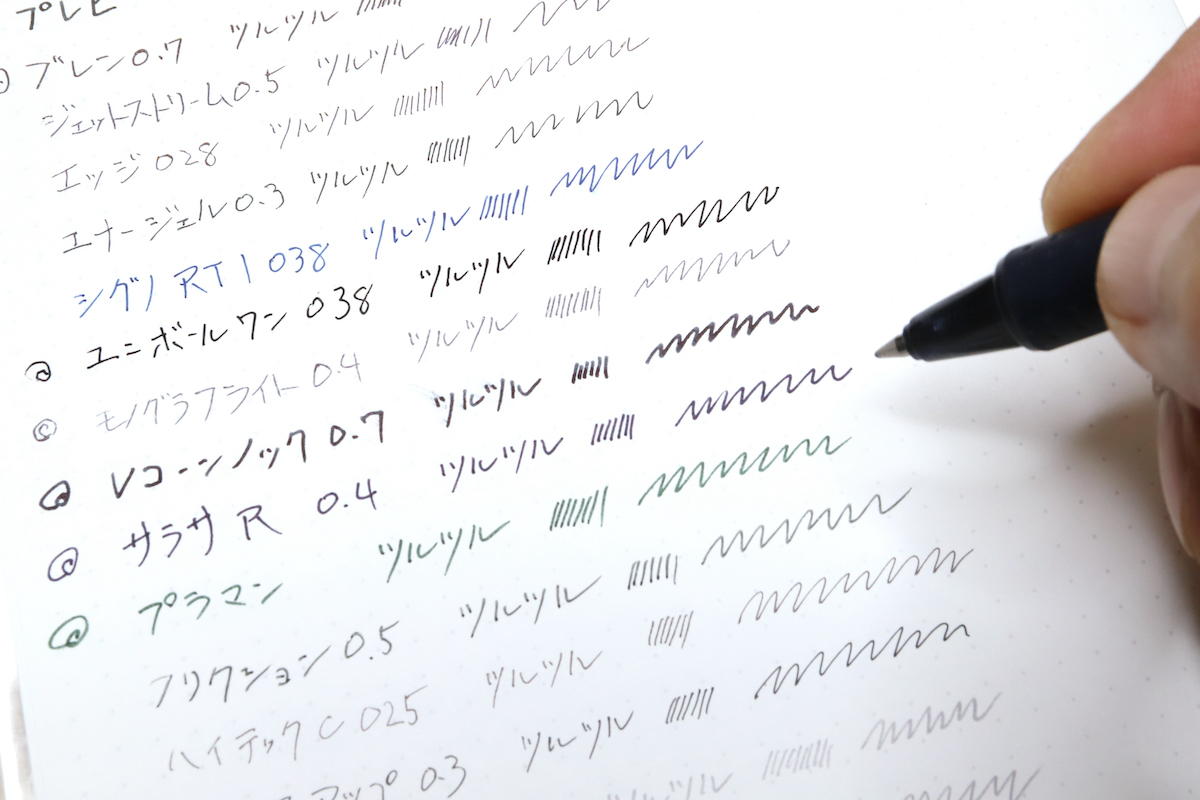 プレピ
ブレン0.7 ツルツル
ジェットストリーム0.5 ツルツル
エッジ028 ツルツル
エナージェル0.3 ツルツル
シグノRT1 038 ツルツル
ユニボールワン038 ツルツル
モノグラフライト0.4 ツルツル
Vコーンノック0.7 ツルツル
サラサR 0.4 ツルツル
プラマン ツルツル
フリクション0.5 ツルツル
ハイテックC025 ツルツル
アップ0.3 ツルツル
ツルツル